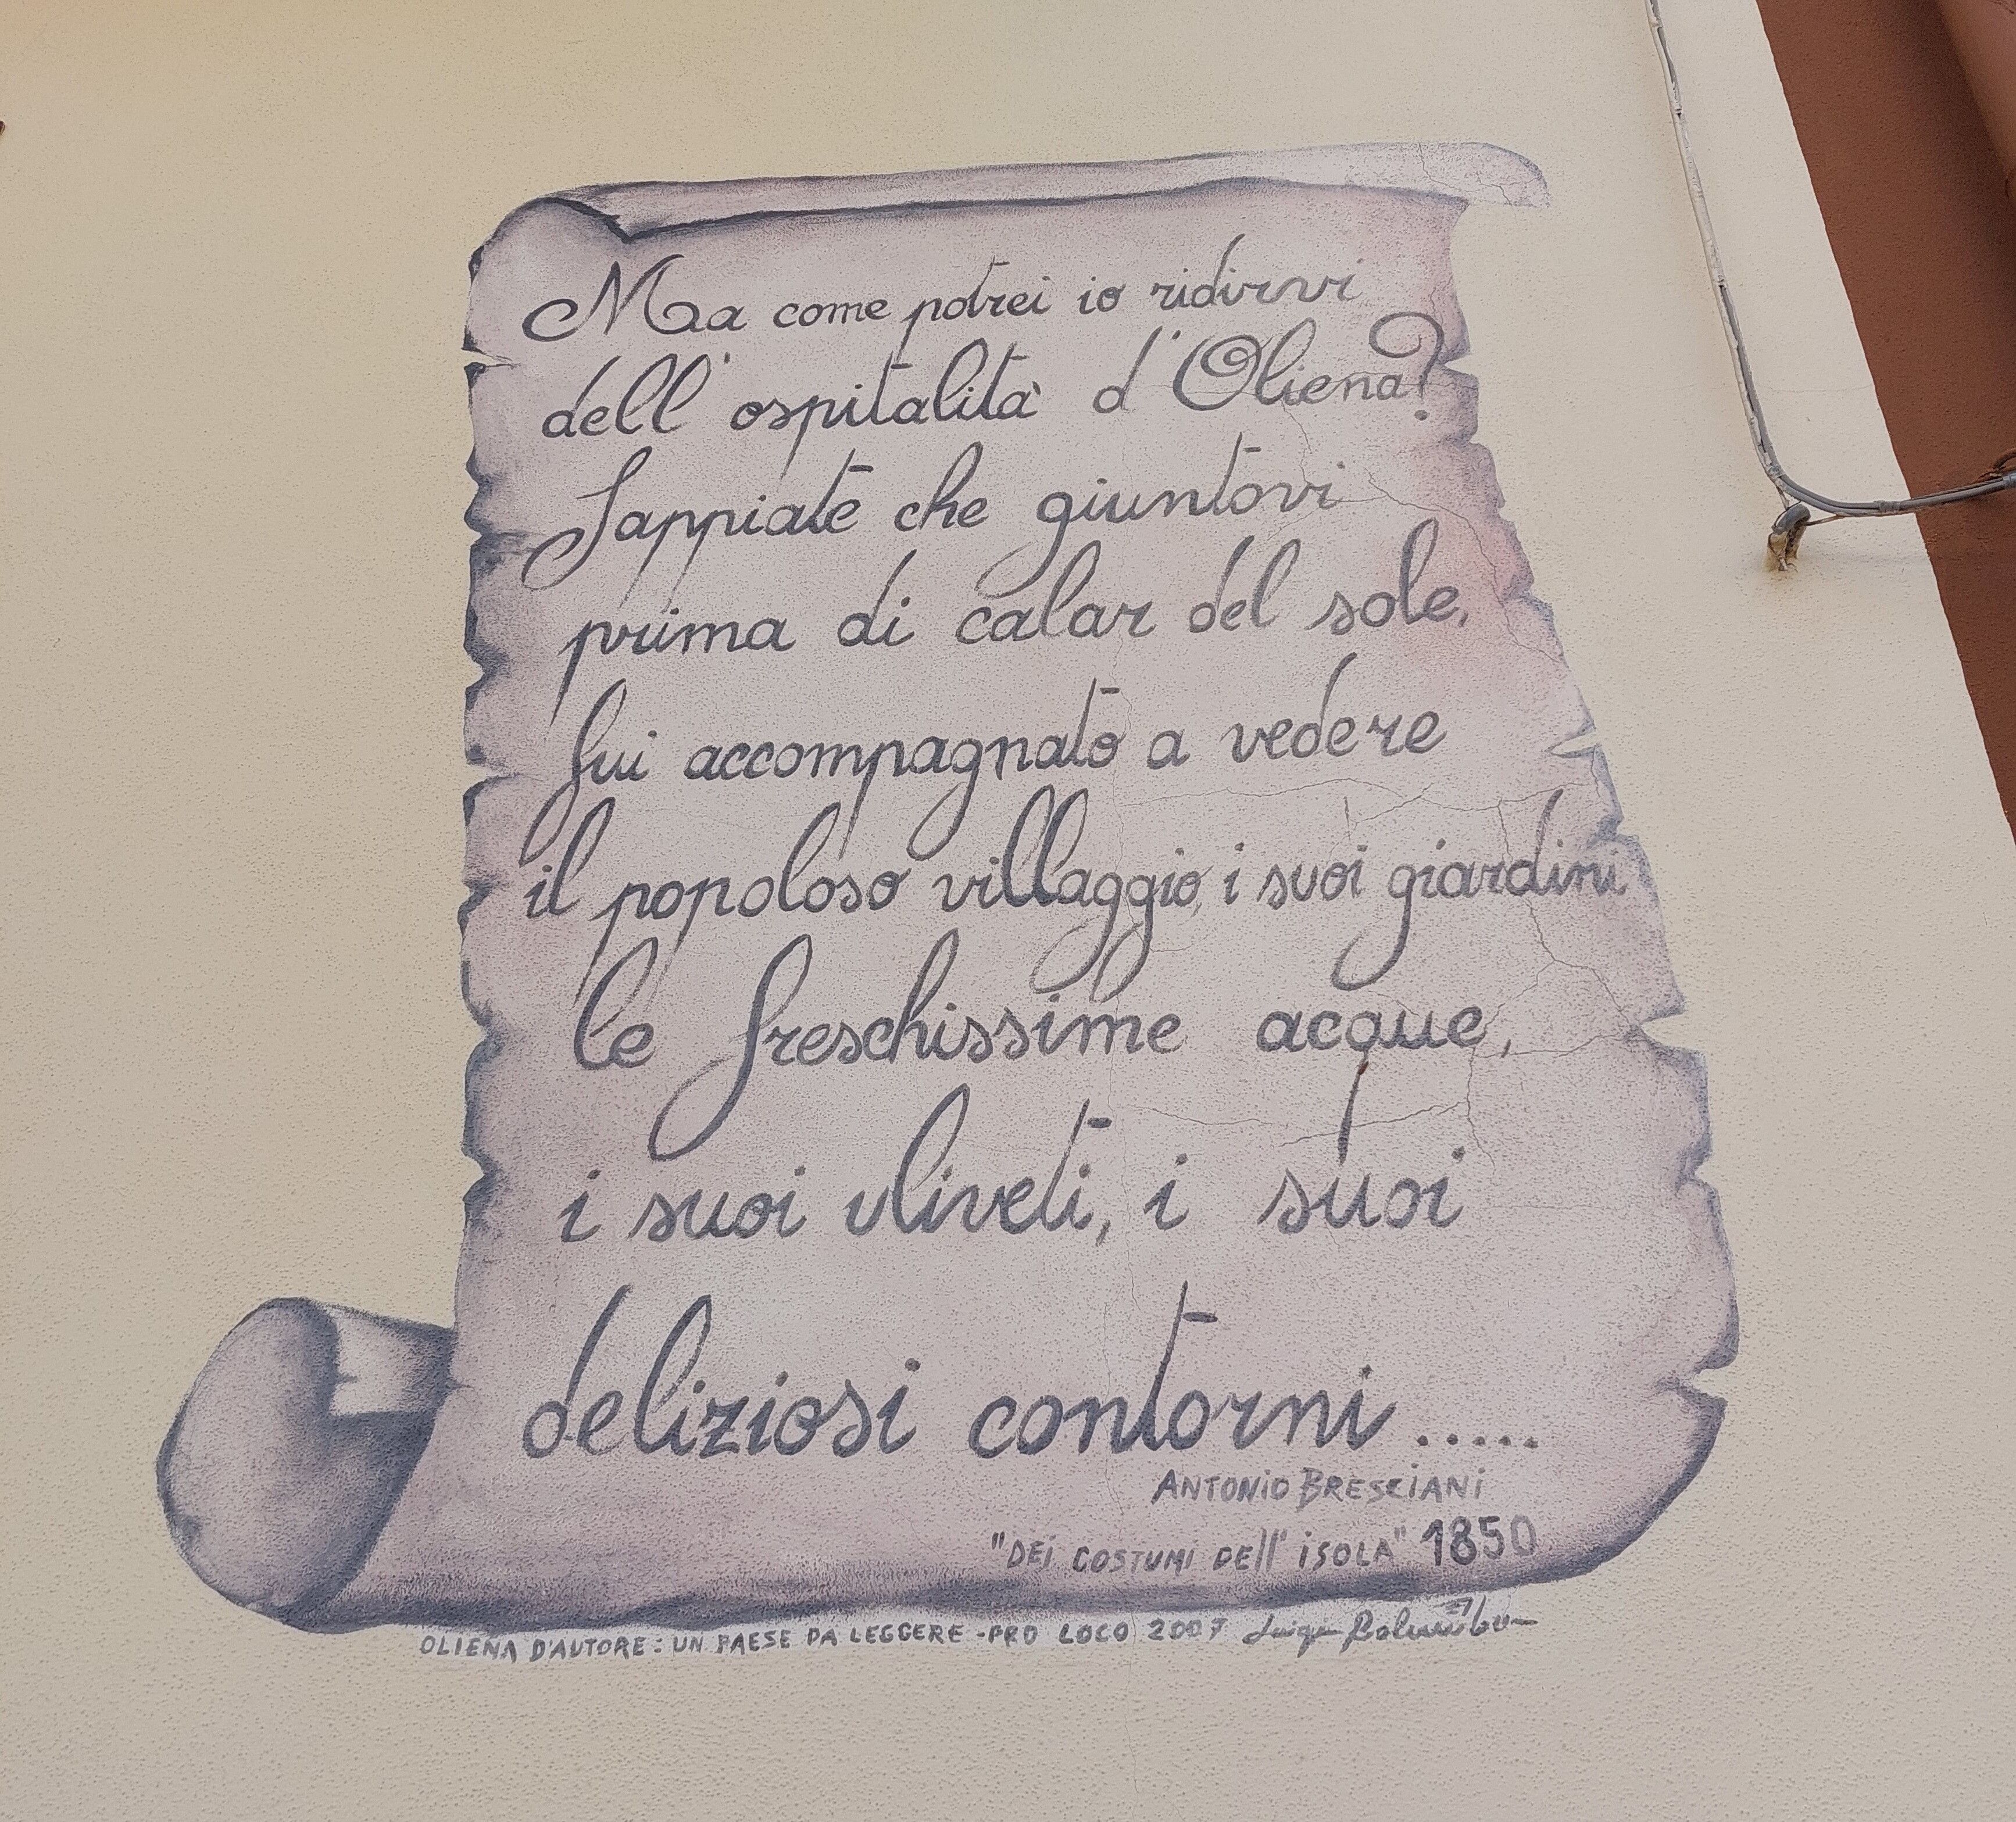 Ma come potrei io ridirvi
dell'ospitalità d'Oliena?
Sappiate che giuntovi
prima di calar del sole,
fui accompagnato a vedere
il popoloso villaggio, i suoi giardini,
le freschissime acque,
i suoi uliveti, i suoi
deliziosi contorni.....
ANTONIO BRESCIANI
"DEI COSTUMI DELL'ISOLA" 1850
OLIENA D'AUTORE: UN PAESE DA LEGGERE - PRO LOCO 2007 Luigi